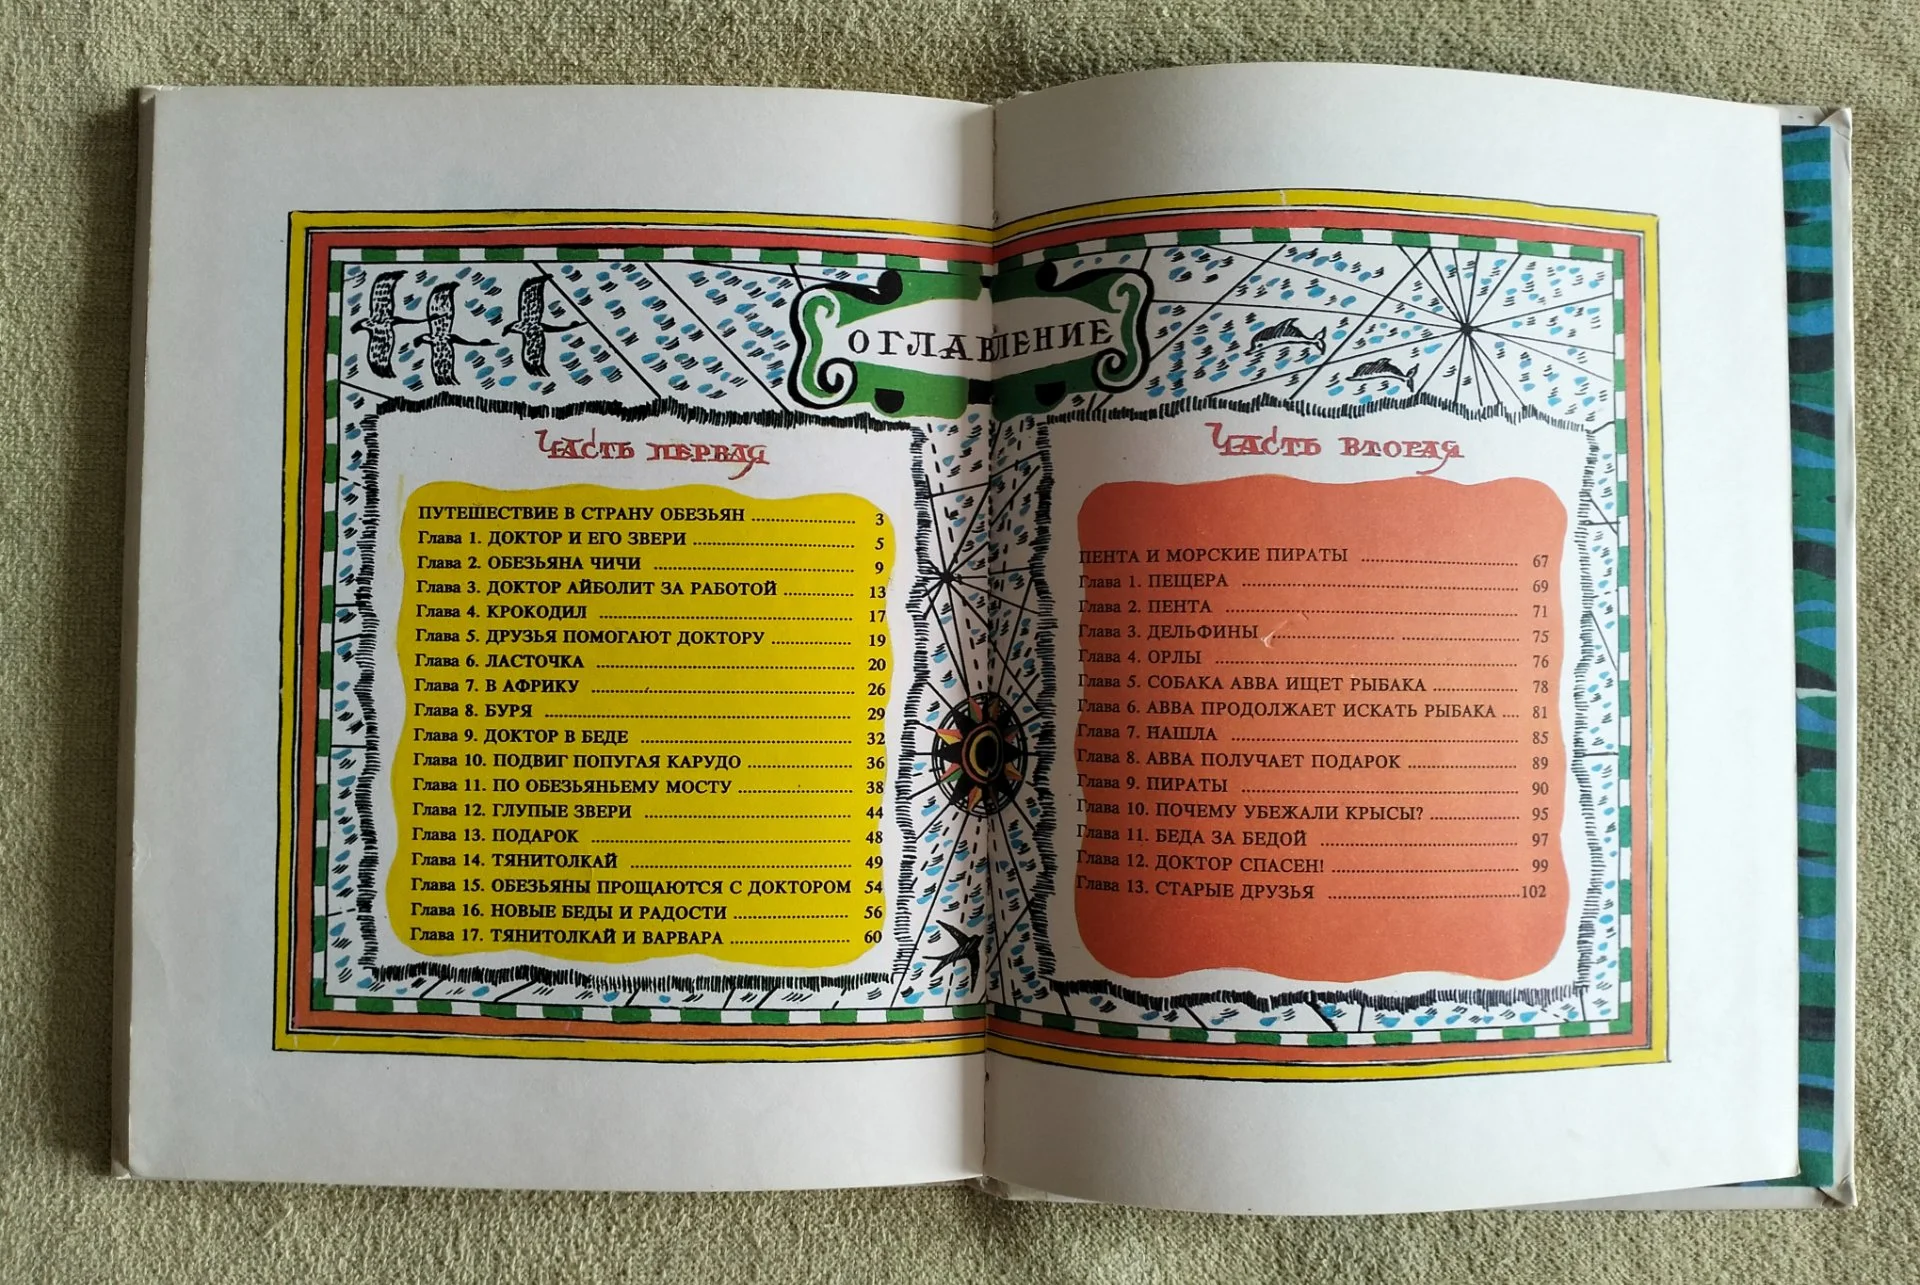 ОГЛАВЛЕНИЕ
Часть первая
ПУТЕШЕСТВИЕ В СТРАНУ ОБЕЗЬЯН ........ 3
Глава 1. ДОКТОР И ЕГО ЗВЕРИ ........ 5
Глава 2. ОБЕЗЬЯНА ЧИЧИ ........ 9
Глава 3. ДОКТОР АЙБОЛИТ ЗА РАБОТОЙ ........ 13
Глава 4. КРОКОДИЛ ........ 17
Глава 5. ДРУЗЬЯ ПОМОГАЮТ ДОКТОРУ ........ 19
Глава 6. ЛАСТОЧКА ........ 20
Глава 7. В АФРИКУ ........ 26
Глава 8. БУРЯ ........ 29
Глава 9. ДОКТОР В БЕДЕ ........ 32
Глава 10. ПОДВИГ ПОПУГАЯ КАРУДО ........ 36
Глава 11. ПО ОБЕЗЬЯНЬЕМУ МОСТУ ........ 38
Глава 12. ГЛУПЫЕ ЗВЕРИ ........ 44
Глава 13. ПОДАРОК ........ 48
Глава 14. ТЯНИТОЛКАЙ ........ 49
Глава 15. ОБЕЗЬЯНЫ ПРОЩАЮТСЯ С ДОКТОРОМ 54
Глава 16. НОВЫЕ БЕДЫ И РАДОСТИ ........ 56
Глава 17. ТЯНИТОЛКАЙ И ВАРВАРА ........ 60
Часть вторая
ПЕНТА И МОРСКИЕ ПИРАТЫ ........ 67
Глава 1. ПЕЩЕРА ........ 69
Глава 2. ПЕНТА ........ 71
Глава 3. ДЕЛЬФИНЫ ........ 75
Глава 4. ОРЛЫ ........ 76
Глава 5. СОБАКА АВВА ИЩЕТ РЫБАКА ........ 78
Глава 6. АВВА ПРОДОЛЖАЕТ ИСКАТЬ РЫБАКА .... 81
Глава 7. НАШЛА ........ 85
Глава 8. АВВА ПОЛУЧАЕТ ПОДАРОК ........ 89
Глава 9. ПИРАТЫ ........ 90
Глава 10. ПОЧЕМУ УБЕЖАЛИ КРЫСЫ? ........ 95
Глава 11. БЕДА ЗА БЕДОЙ ........ 97
Глава 12. ДОКТОР СПАСЕН! ........ 99
Глава 13. СТАРЫЕ ДРУЗЬЯ ........ 102